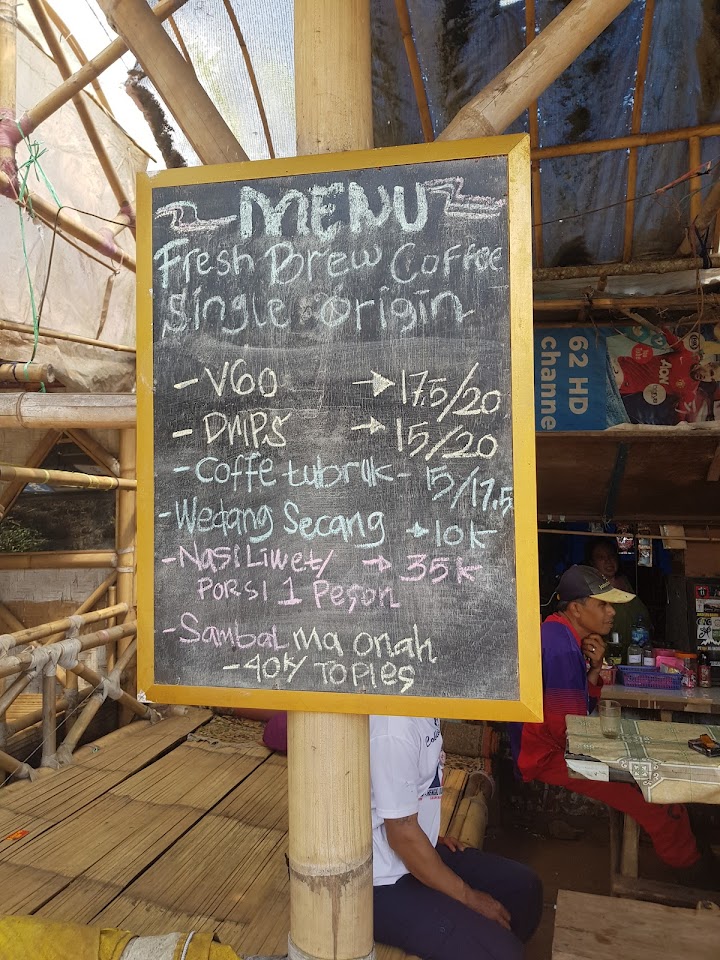 MENU
Fresh Brew Coffee
Single Origin
- V60 → 17.5/20
- DMPS → 15/20
- Coffe tubruk - 15/17.5
- Wedang Secang → 10K
- Nasi Liwet/ → 35K
Porsi 1 Peson
- Sambal Ma Onah
- 40K/ TOPLES
62 HD
channe
AON